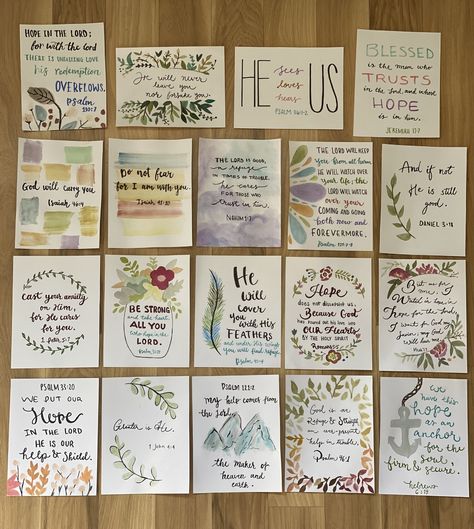 HOPE IN THE LORD;
for with the Lord
THERE IS UNFAILING LOVE
his redemption
OVERFLOWS.
Psalm
130:7
He will never
leave you
nor forsake you.
HE sees
loves
hears US
PSALM 34:1-2
BLESSED
is the man who
TRUSTS
in the Lord, and whose
HOPE
is in him.
JEREMIAH 17:7
God will carry you
Isaiah 46:4
Do not fear
for I am with you.
Isaiah 41:10
THE LORD IS GOOD,
a refuge
IN TIMES OF TROUBLE.
he cares
FOR THOSE WHO
trust in him.
NAHUM 1:7
THE LORD WILL KEEP
you from all harm
HE WILL WATCH OVER
your life; the
LORD WILL WATCH
over your
COMING AND GOING
both now and
FOREVERMORE.
Psalm 121:7-8
And if not
He is still
good.
DANIEL 3:18
Cast your anxiety
on Him,
for He cares
for you.
1 Peter 5:7
BE STRONG
and take heart
ALL YOU
who hope in the
LORD.
Psalm 31:24
He
will
cover
you
with His
FEATHERS
and under His wings
you will find refuge
Psalm 91:4
Hope
does not disappoint us,
Because God
has poured out his love into
our Hearts
BY THE HOLY SPIRIT
Romans 5:5
But as for
me, I
Watch in hope
for the Lord,
I wait for God my
Savior; my God
will hear me.
Micah 7:7
PSALM 33:20
WE PUT OUR
Hope
IN THE LORD
HE IS OUR
help & Shield.
Greater is He.
1 John 4:4
PSALM 121:2
my help comes from
the Lord,
the maker of
heaven and
earth.
God is our
Refuge & Strength
an ever-present
help in trouble.
Psalm 46:1
we have
this hope
as an
anchor
for the
soul,
firm & secure.
hebrews
6:19